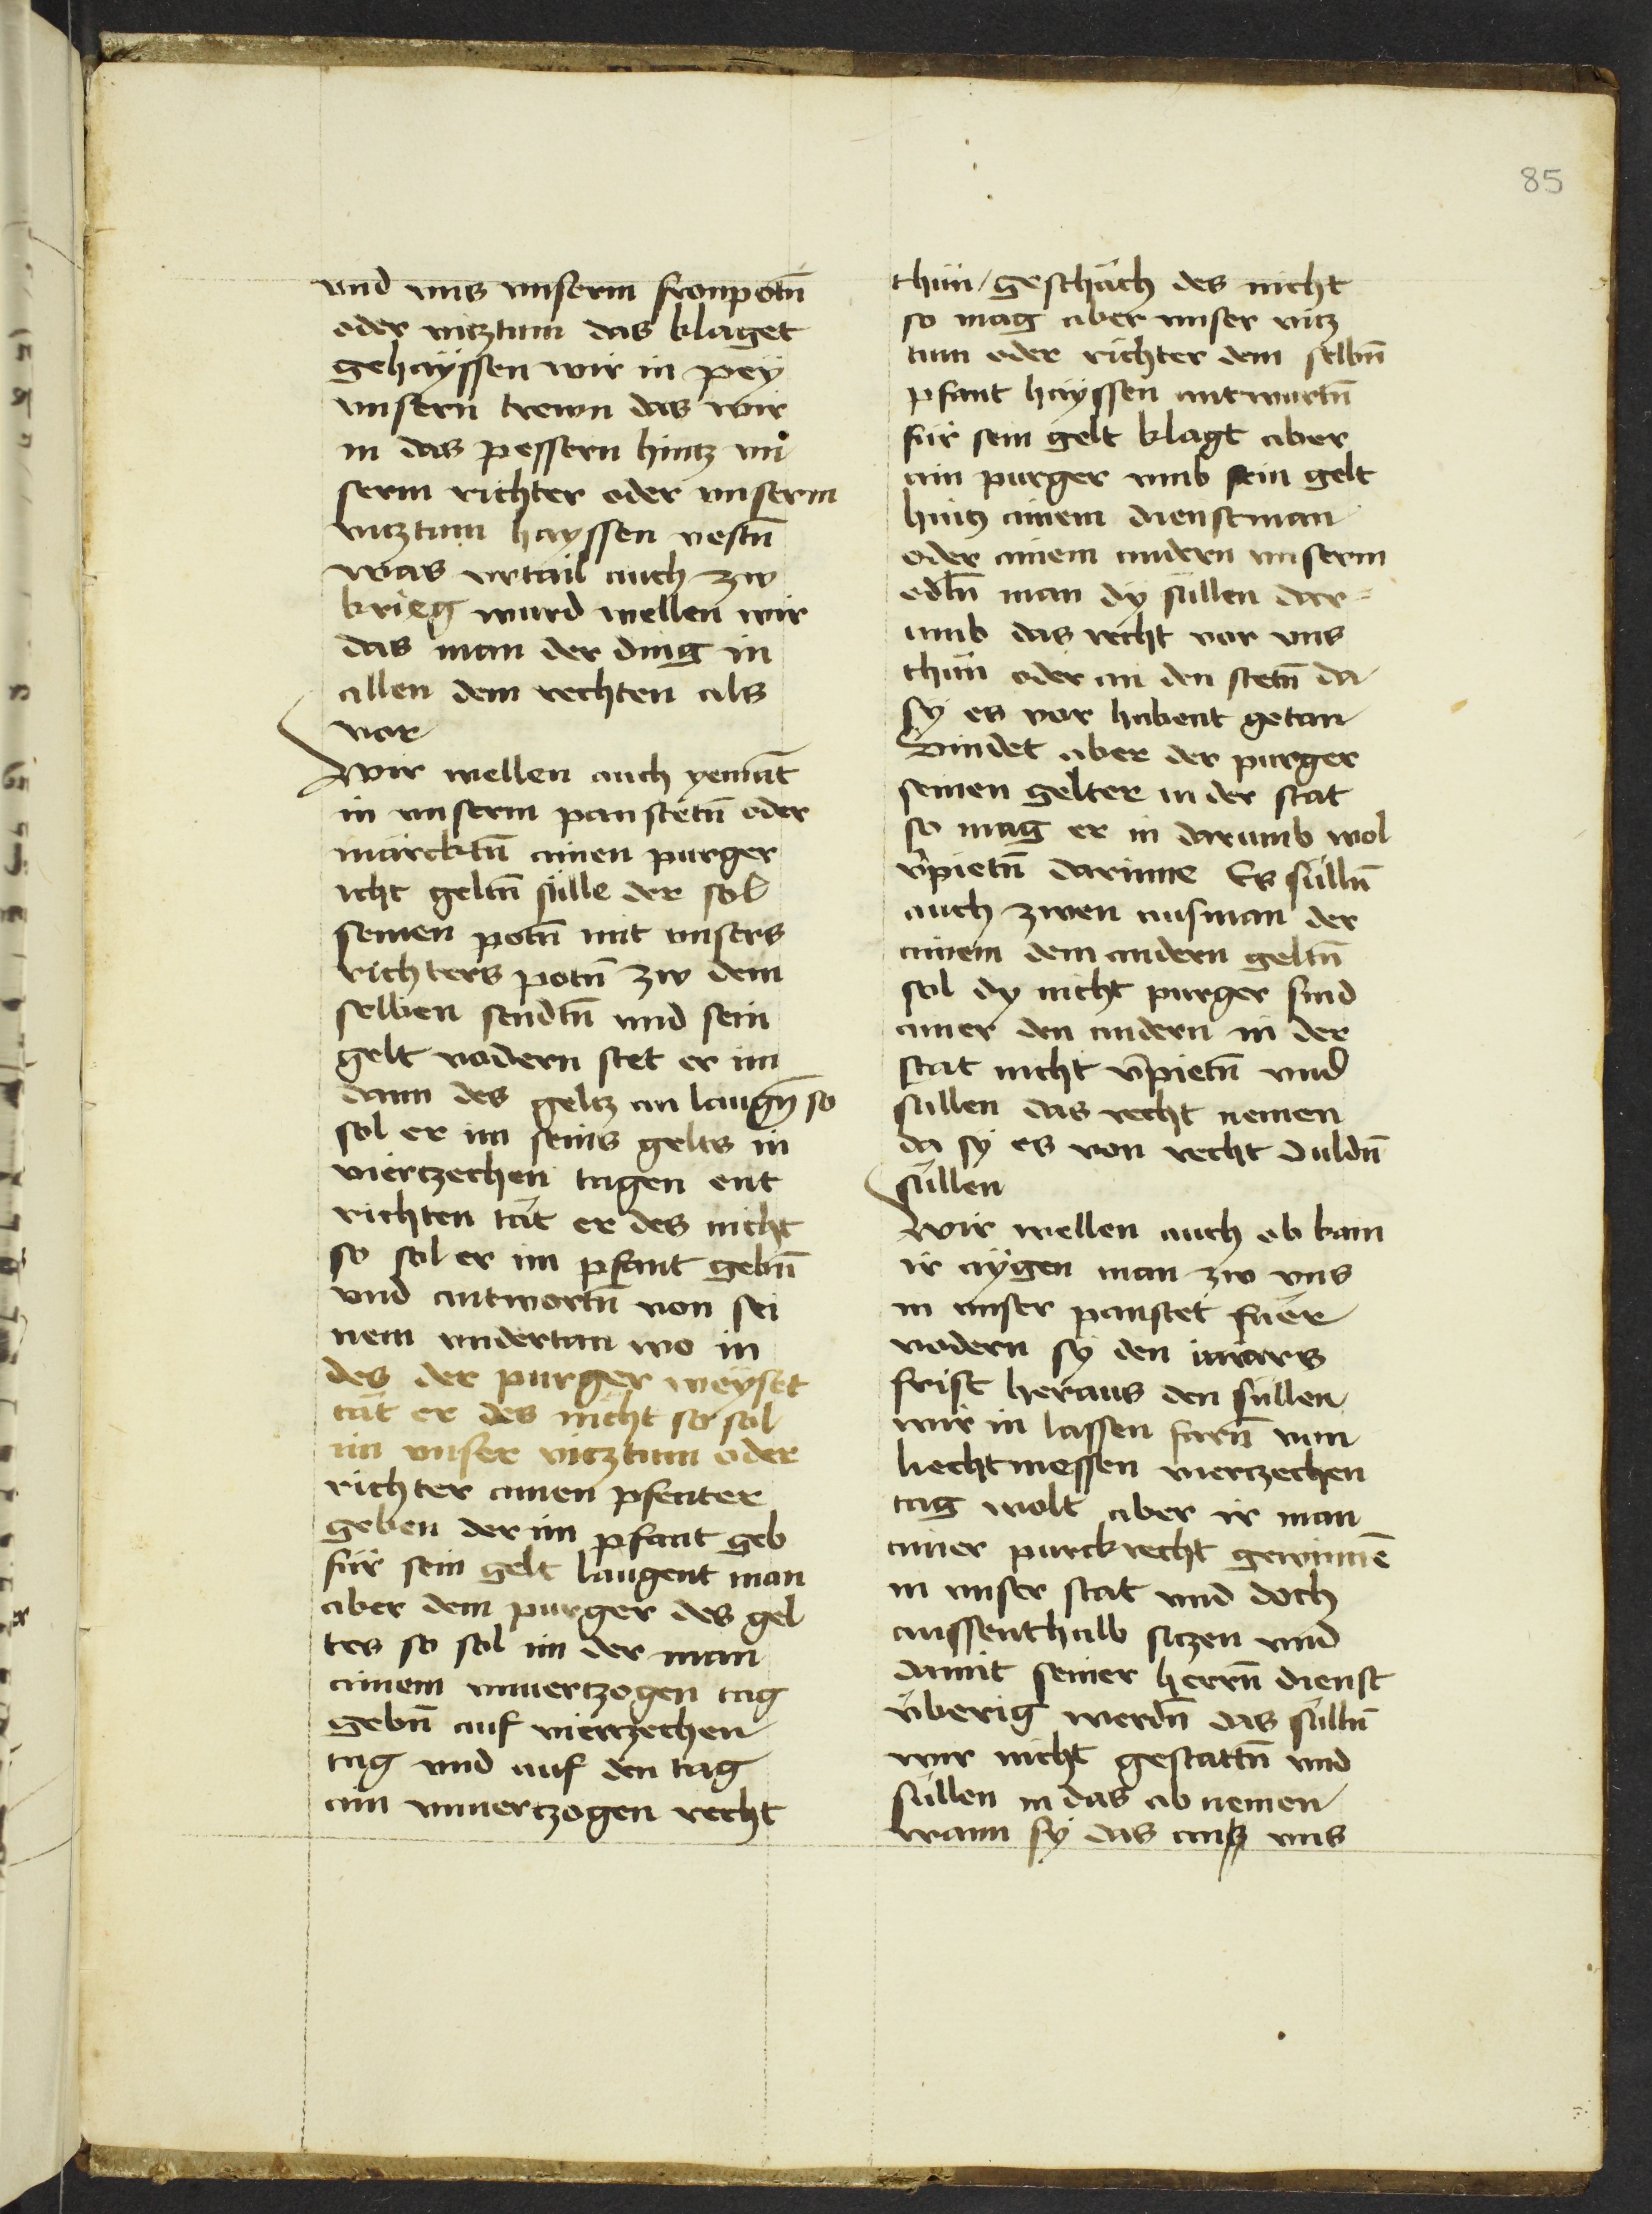 85
vnd vns vnserm fronpotñ
oder vitztum das klaget
gehaÿssen wir in peÿ
vnsern trewn das wir
in das pessern hintz vn
serm richter oder vnserm
vitztum hayssen vestñ
was vrtail auch zw
krieg wurd wellen wir
das man der ding in
allen dem rechten als
vor
Wir wellen auch yemãt
in vnserm panstetñ oder
märcktñ ainen purger
icht geltñ sülle der sol
seinen potñ mit vnsers
richters potñ zw dem
selben sendtñ vnd sein
gelt vadern stet er im
dann des geltz an laugñ so
sol er im seins gelts in
viertzechen tagen ent
richten tät er des nicht
so sol er im pfant gebñ
vnd antwortñ von sei
nem vndertan wo in
des der purger weÿset
tät er des nicht so sol
im vnser vitztum oder
richter ainen pfenter
geben der im pfant geb
für sein gelt laugent man
aber dem purger des gel
tes so sol im der man
ainem vnuertzogen tag
gebñ auf viertzechen
tag vnd auf den tag
ain vnuertzogen recht
thün / geschäch des nicht
so mag aber vnser vitz
tum oder richter dem selbñ
pfant haÿssen antwurtñ
für sein gelt klagt aber
ain purger vmb sein gelt
hintz ainem dienstman
oder ainem andern vnserm
edlñ man dÿ süllen dar=
umb das recht vor vns
thün oder an den stetñ da
sÿ es vor habent getan
Vindet aber der purger
seinen gelter in der stat
so mag er in darumb wol
v̄pietñ darinne Es süllñ
auch zwen ausman der
ainem dem andern geltñ
sol dy nicht purger sind
ainer den andern in der
stat nicht v̄pietñ vnd
süllen das recht nemen
da sÿ es von recht duldñ
süllen
Wir wellen auch ob kain
ir aÿgen man zw vns
in vnser panstet fuer
vodern sÿ den
frist heraus den süllen
wir in lassen farñ von
liechtmessen viertzechen
tag wolt aber ir man
ainer purckrecht gewinnē
in vnser stat vnd doch
aussenthalb sitzen vnd
damit seiner herrñ dienst
überig werdñ das süllñ
wir nicht gestattñ vnd
süllen in das ab nemen
wann sÿ das an vns